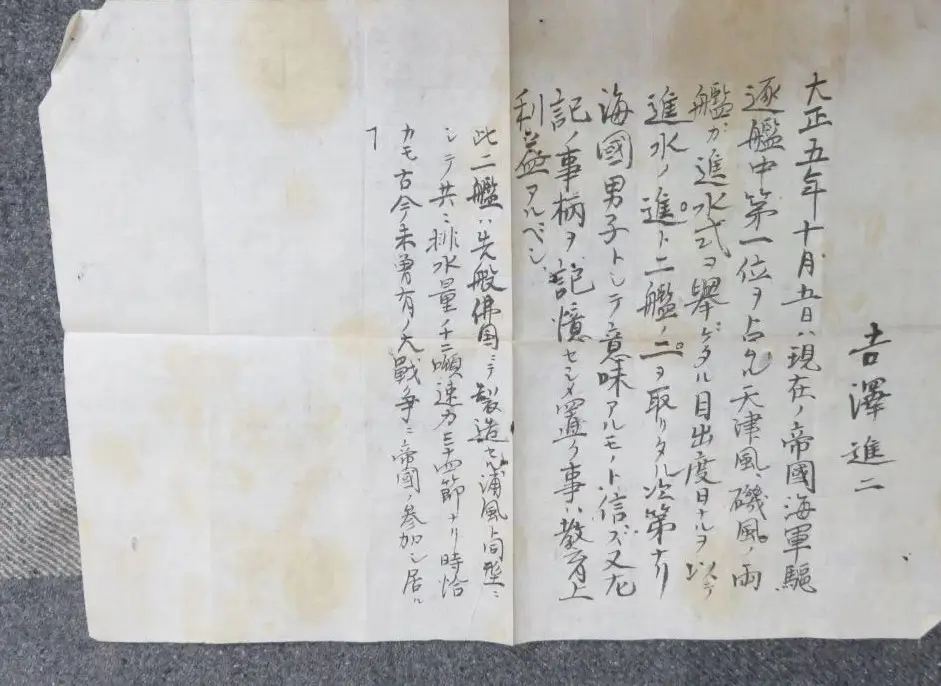 吉澤進二
大正五年十月五日ハ現在ノ帝國海軍驅
逐艦中第一位ヲ占ムル天津風、磯風ノ両
艦ガ進水式ヲ擧ゲタル目出度日ナルヲ以テ
進水ノ進ト二艦ノ二ヲ取リタル次第ナリ
海國男子トシテ意味アルモノト信ズ又左
記ノ事柄ヲ記憶セシメ置ク事ハ教育上
利益アルベシ、
此二艦ハ先般佛国ニテ製造セル浦風ト同型ニ
シテ共ニ排水量千二噸速力三十四節ナリ時恰
カモ古今未曽有ノ大戰争ニ帝國ノ参加シ居ル